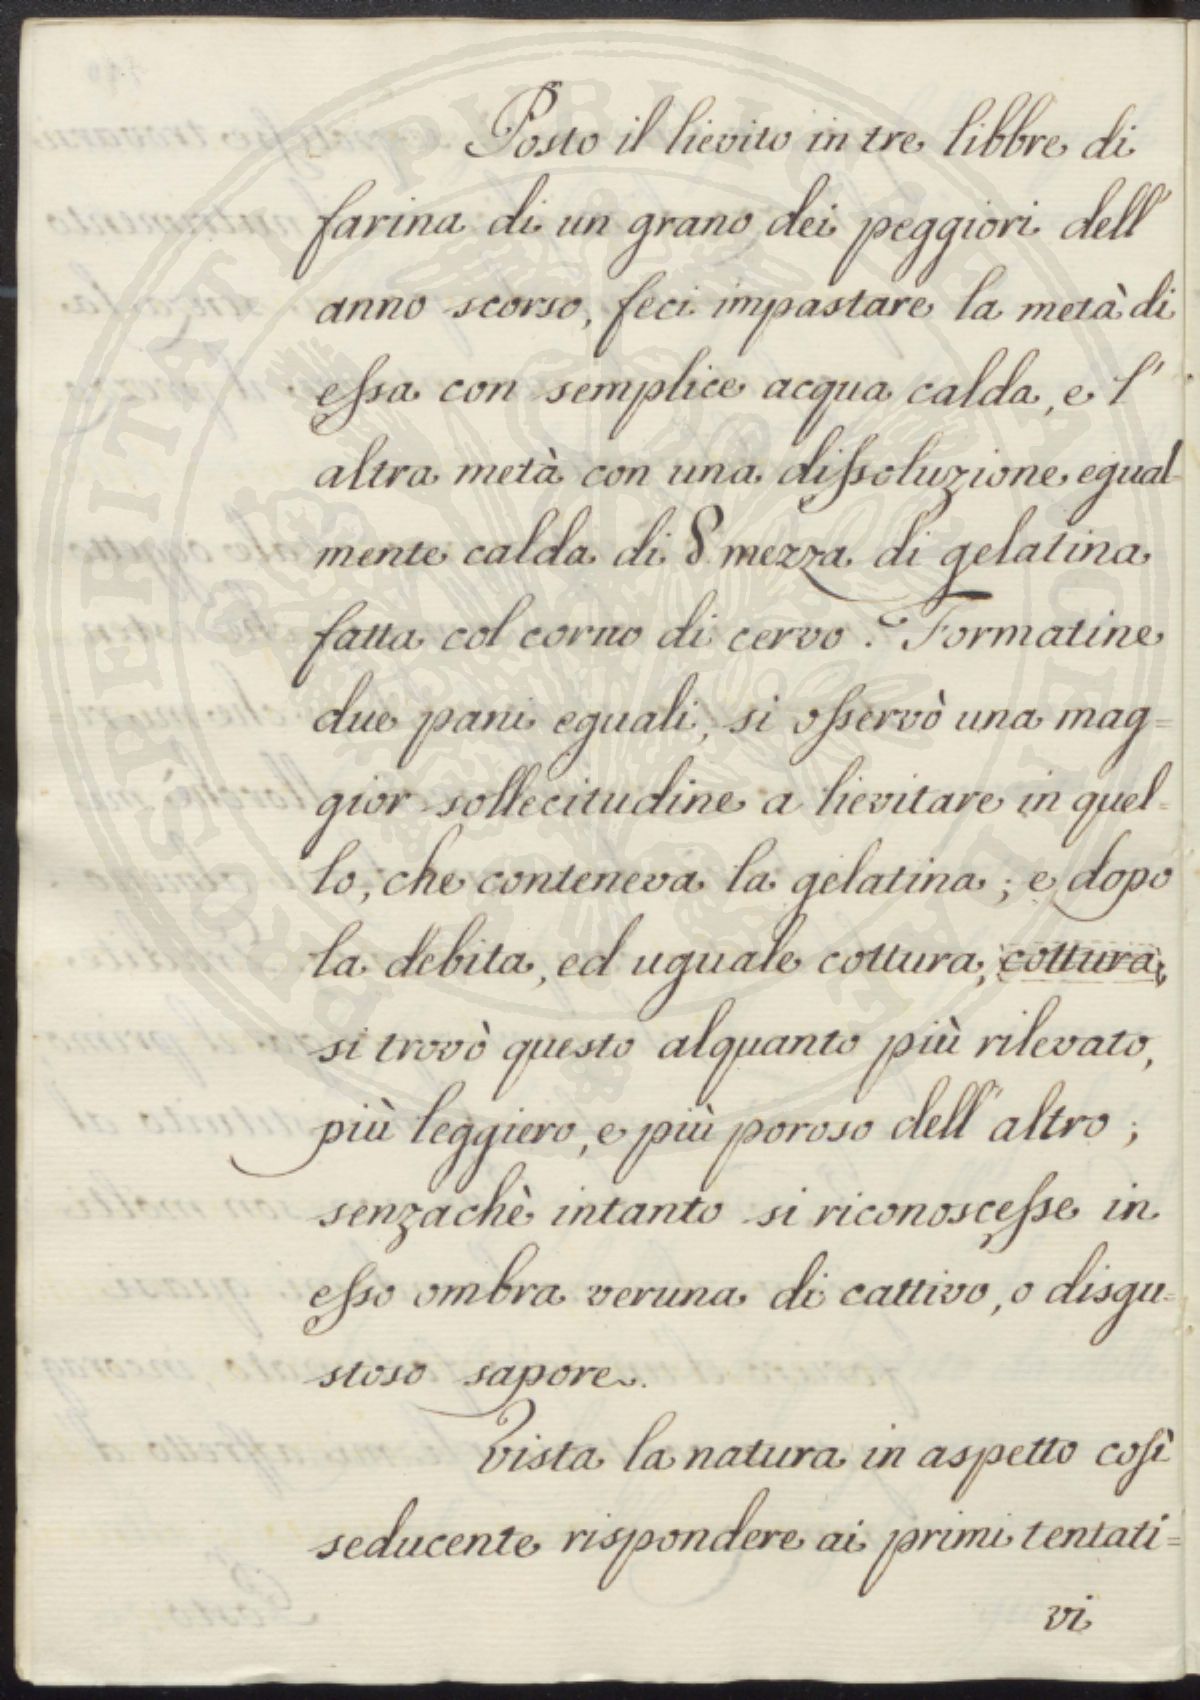 Posto il lievito in tre libbre di
farina di un grano dei peggiori dell'
anno scorso, feci impastare la metà di
essa con semplice acqua calda, e l'
altra metà con una dissoluzione egual-
mente calda di ℔ mezza di gelatina
fatta col corno di cervo. Formatine
due pani eguali, si osservò una mag=
gior sollecitudine a lievitare in quel=
lo, che conteneva la gelatina; e dopo
la debita, ed uguale cottura, cottura,
si trovò questo alquanto più rilevato,
più leggiero, e più poroso dell'altro;
senzachè intanto si riconoscesse in
esso ombra veruna di cattivo, o disgu=
stoso sapore.
Vista la natura in aspetto così
seducente rispondere ai primi tentati=
vi
PROSPERITATI PUBLICAE AUGENDAE